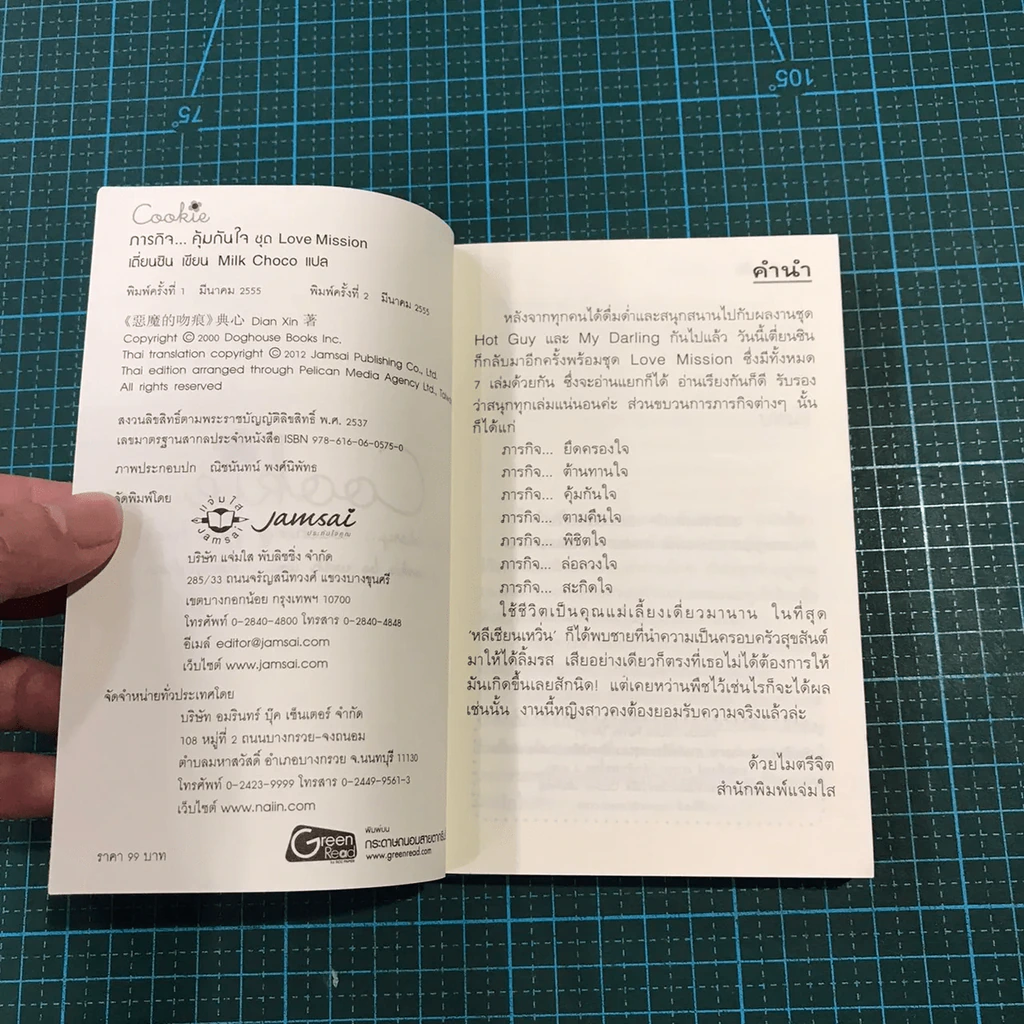 75°
105°
Cookie
ภารกิจ... คุ้มกันใจ ชุด Love Mission
เตี่ยนซิน เขียน Milk Choco แปล
พิมพ์ครั้งที่ 1 มีนาคม 2555 พิมพ์ครั้งที่ 2 มีนาคม 2555
《惡魔的吻痕》典心 Dian Xin 著
Copyright © 2000 Doghouse Books Inc.
Thai translation copyright © 2012 Jamsai Publishing Co., Ltd.
Thai edition arranged through Pelican Media Agency Ltd., Taiwan
All rights reserved
สงวนลิขสิทธิ์ตามพระราชบัญญัติลิขสิทธิ์ พ.ศ. 2537
เลขมาตรฐานสากลประจำหนังสือ ISBN 978-616-06-0575-0
ภาพประกอบปก ณิชนันทน์ พงศ์นิพัทธ
จัดพิมพ์โดย
แจ่มใส
Jamsai
Jamsai
ประทับใจคุณ
บริษัท แจ่มใส พับลิชชิ่ง จำกัด
285/33 ถนนจรัญสนิทวงศ์ แขวงบางขุนศรี
เขตบางกอกน้อย กรุงเทพฯ 10700
โทรศัพท์ 0-2840-4800 โทรสาร 0-2840-4848
อีเมล์ editor@jamsai.com
เว็บไซต์ www.jamsai.com
จัดจำหน่ายทั่วประเทศโดย
บริษัท อมรินทร์ บุ๊ค เซ็นเตอร์ จำกัด
108 หมู่ที่ 2 ถนนบางกรวย-จงถนอม
ตำบลมหาสวัสดิ์ อำเภอบางกรวย จ.นนทบุรี 11130
โทรศัพท์ 0-2423-9999 โทรสาร 0-2449-9561-3
เว็บไซต์ www.naiin.com
Green Read
พิมพ์บน
กระดาษถนอมสายตากรีน
www.greenread.com
ราคา 99 บาท
คำนำ
หลังจากทุกคนได้ดื่มด่ำและสนุกสนานไปกับผลงานชุด
Hot Guy และ My Darling กันไปแล้ว วันนี้เตี่ยนซิน
ก็กลับมาอีกครั้งพร้อมชุด Love Mission ซึ่งมีทั้งหมด
7 เล่มด้วยกัน ซึ่งจะอ่านแยกก็ได้ อ่านเรียงกันก็ดี รับรอง
ว่าสนุกทุกเล่มแน่นอนค่ะ ส่วนขบวนการภารกิจต่างๆ นั้น
ก็ได้แก่
ภารกิจ... ยึดครองใจ
ภารกิจ... ต้านทานใจ
ภารกิจ... คุ้มกันใจ
ภารกิจ... ตามคืนใจ
ภารกิจ... พิชิตใจ
ภารกิจ... ล่อลวงใจ
ภารกิจ... สะกิดใจ
ใช้ชีวิตเป็นคุณแม่เลี้ยงเดี่ยวมานาน ในที่สุด
'หลีเชียนเหวิ่น' ก็ได้พบชายที่นำความเป็นครอบครัวสุขสันต์
มาให้ได้ลิ้มรส เสียอย่างเดียวก็ตรงที่เธอไม่ได้ต้องการให้
มันเกิดขึ้นเลยสักนิด! แต่เคยหว่านพืชไว้เช่นไรก็จะได้ผล
เช่นนั้น งานนี้หญิงสาวคงต้องยอมรับความจริงแล้วล่ะ
ด้วยไมตรีจิต
สำนักพิมพ์แจ่มใส